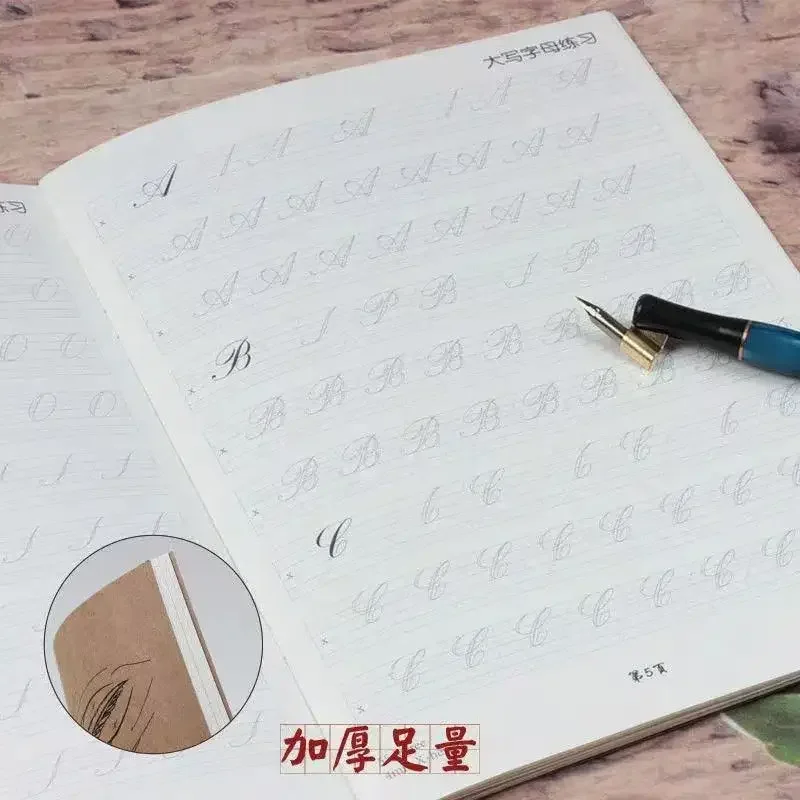 大写字母练习
习
A A A A A
A A A A A A A A
A A A A A A A A
B P B P B
B B B B B B B B B
B B B B B B B B
C C C C
C C C C C C C C
C C C C C C C
O
O
O O
O O
第5页
加厚足量